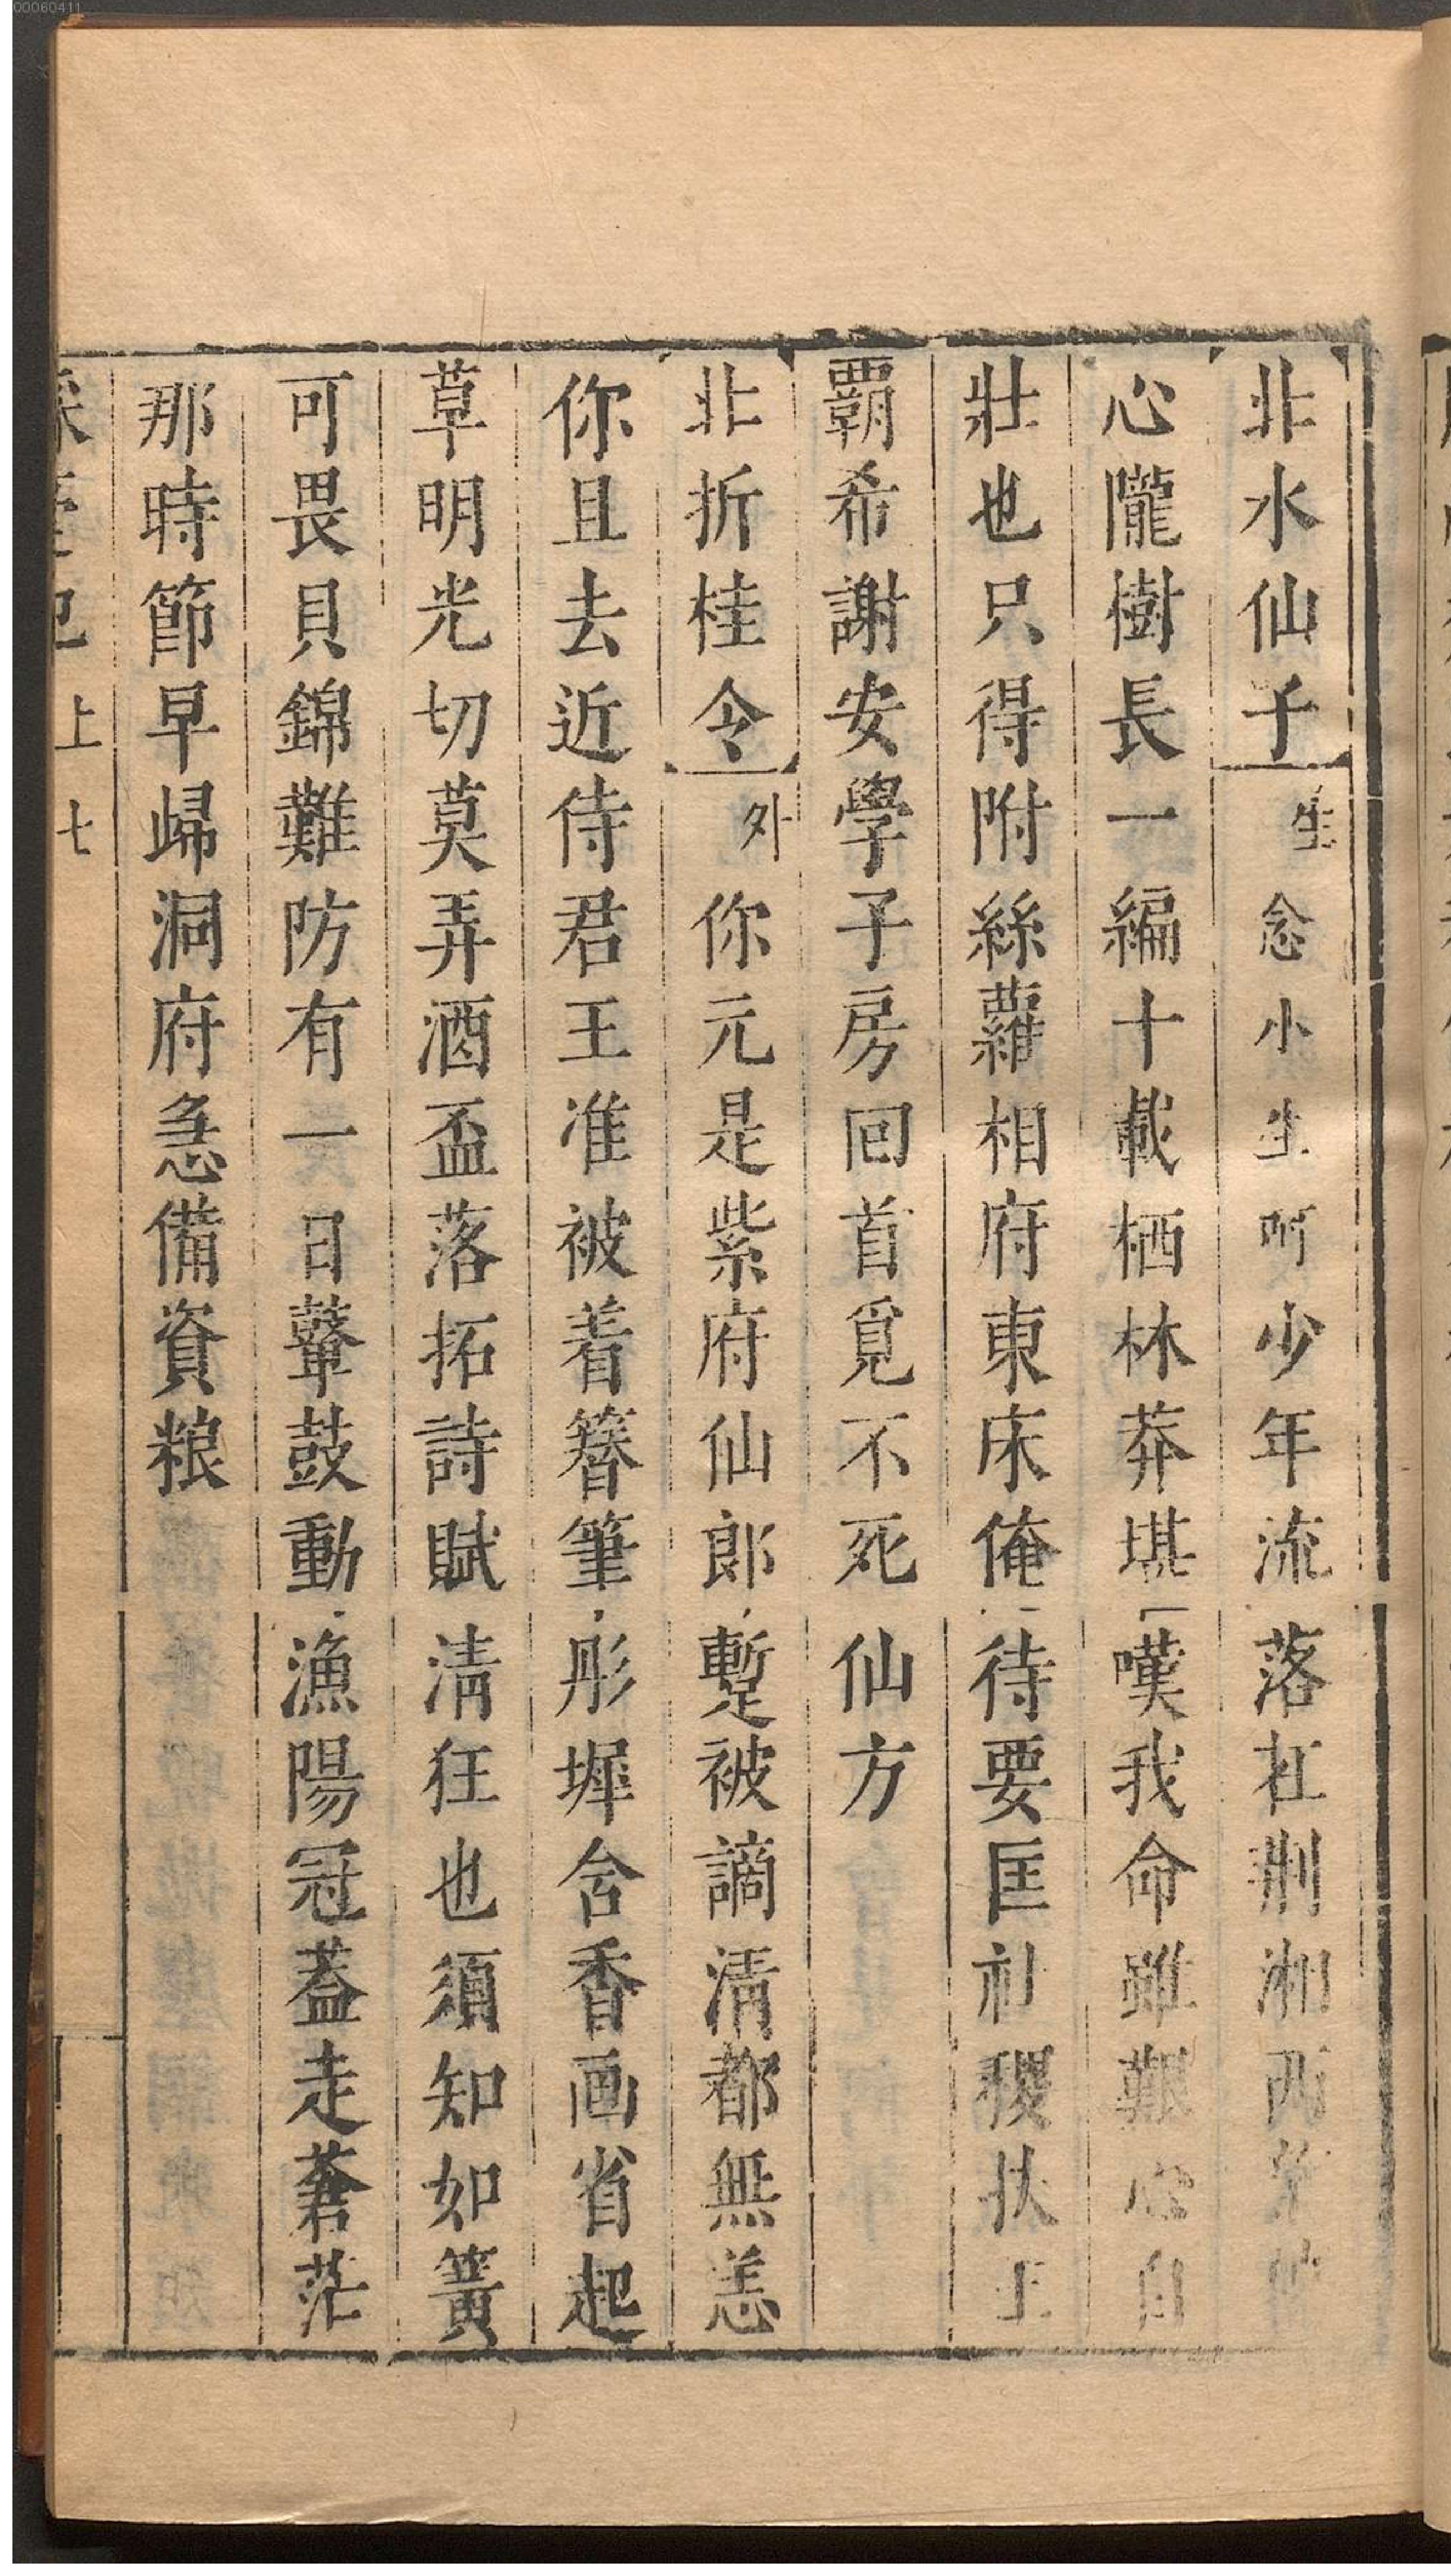 北水仙子生念小生呵少年流落在荆湘兩
心隴樹長一編十載栖林莽堪嘆我命雖艱心自
壯也只得附絲蘿相府東床俺待要匡社稷扶王
覇希謝安學子房回首覓不死仙方
北折桂令外你元是紫府仙郎暫被謫清都無恙
你且去近侍君王准被着簪筆彤墀含香画省起
草明光切莫弄酒盃落拓詩賦清狂也須知如簧
可畏貝錦難防有一日鼙鼓動漁陽冠蓋走蒼茫
那時節早歸洞府急備資粮
上 七
00060411